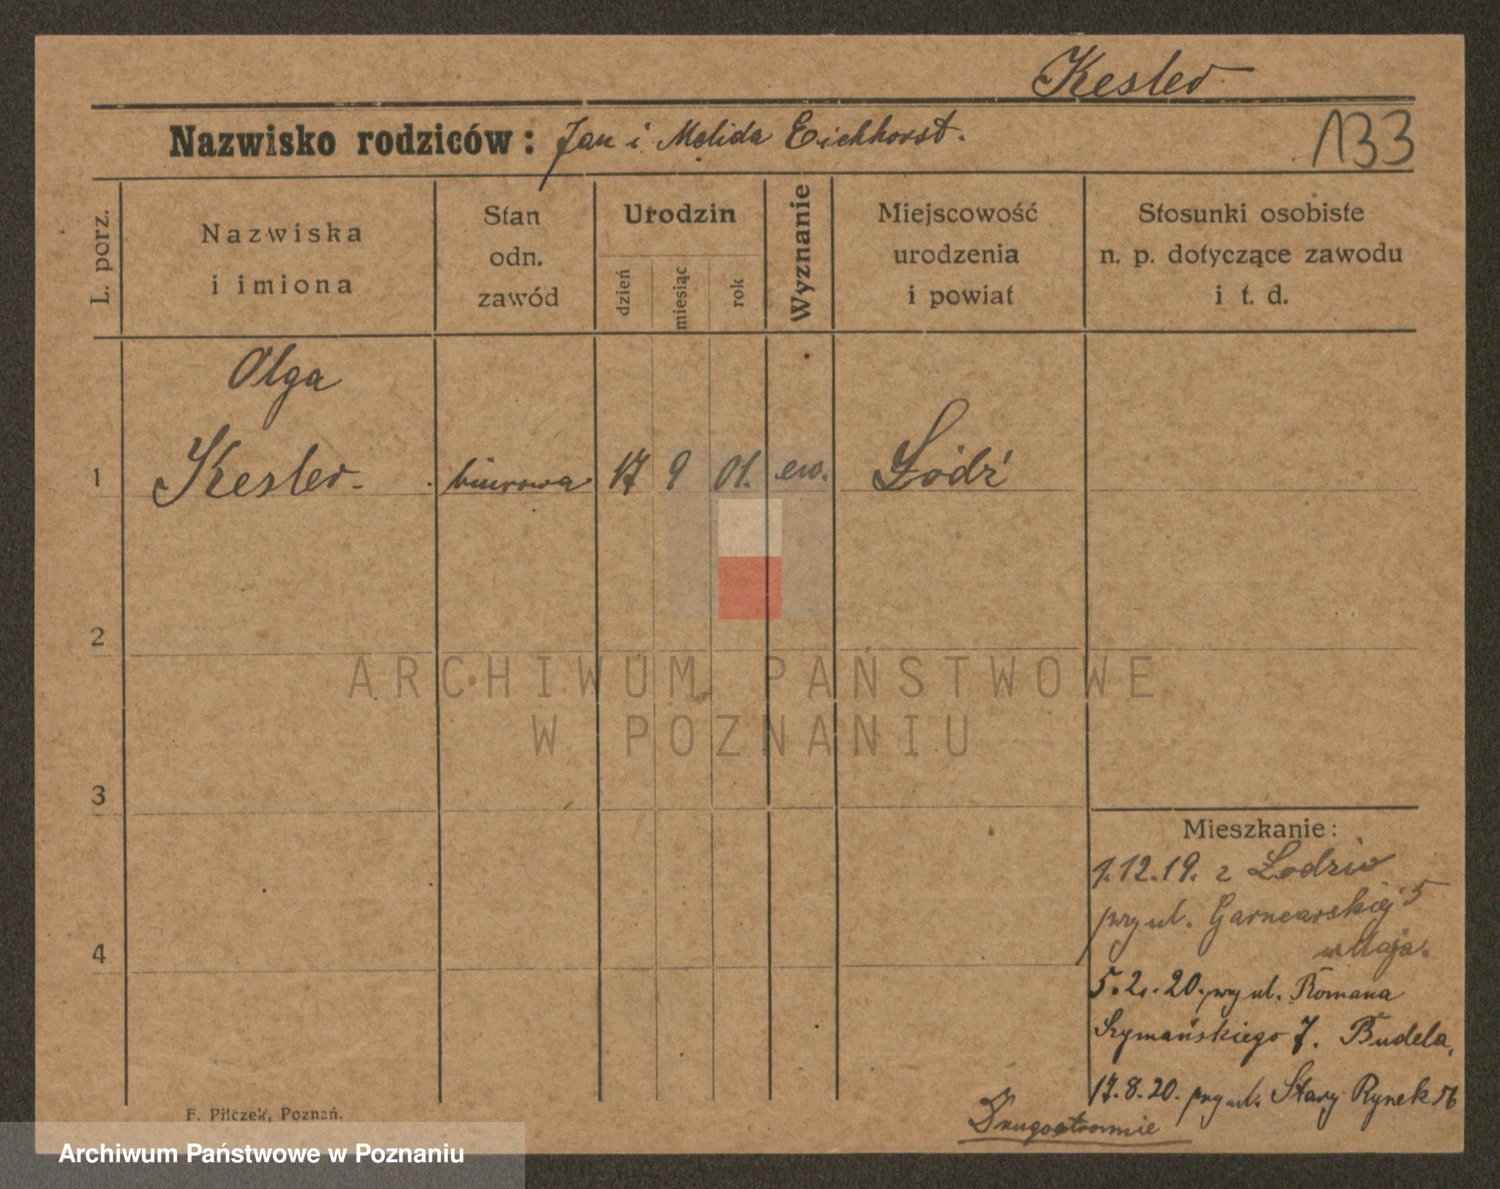 Kesler
Nazwisko rodziców: Jan i Melida Eichhorst.
133
L. porz.
Nazwiska
i imiona
Stan
odn.
zawód
Urodzin
dzień
miesiąc
rok
Wyznanie
Miejscowość
urodzenia
i powiat
Stosunki osobiste
n. p. dotyczące zawodu
i t. d.
Olga
1 Kesler. biurowa 17 9 01. ew. Łódź
2
ARCHIWUM PAŃSTWOWE
W POZNANIU
3
Mieszkanie:
1.12.19. z Łodzi
przy ul. Garncarskiej 5
u Maja.
4
5.2.20. przy ul. Romana
Szymańskiego 7. Budela,
17.8.20. przy ul. Stary Rynek
Drugostronnie
F. Pilczek, Poznań.
Archiwum Państwowe w Poznaniu